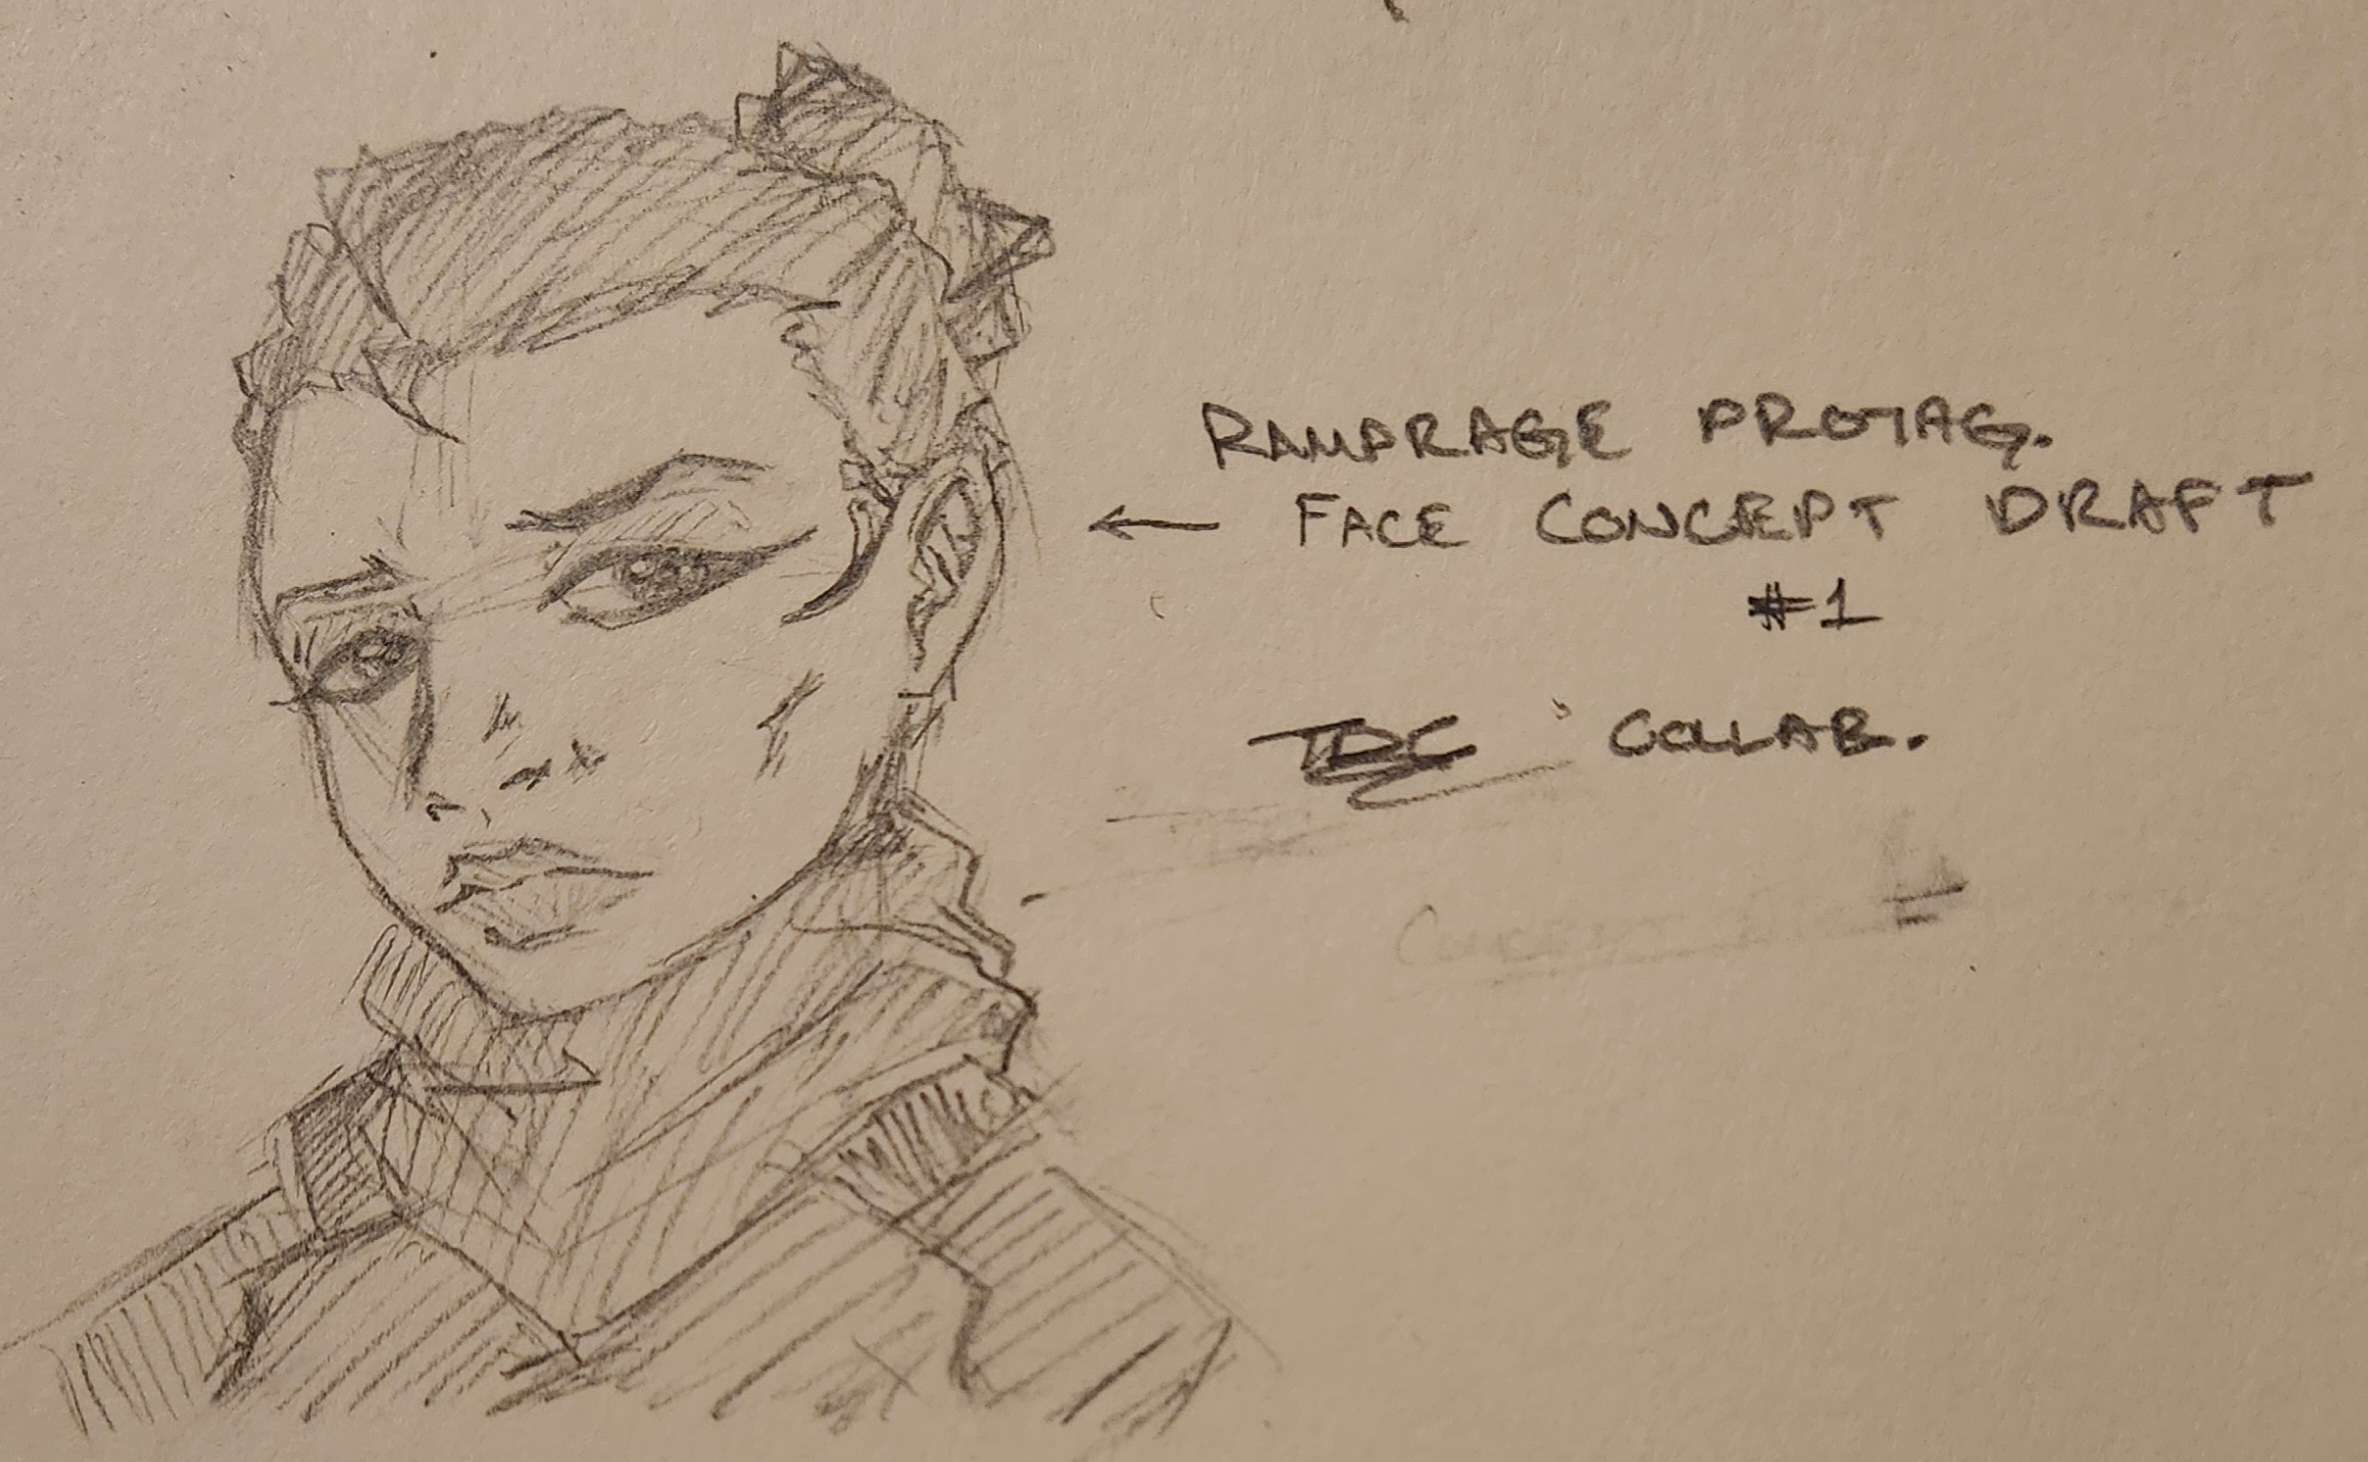 RAMPRAGE PROTAG.
← FACE CONCEPT DRAFT
#1
TDC COLLAB.